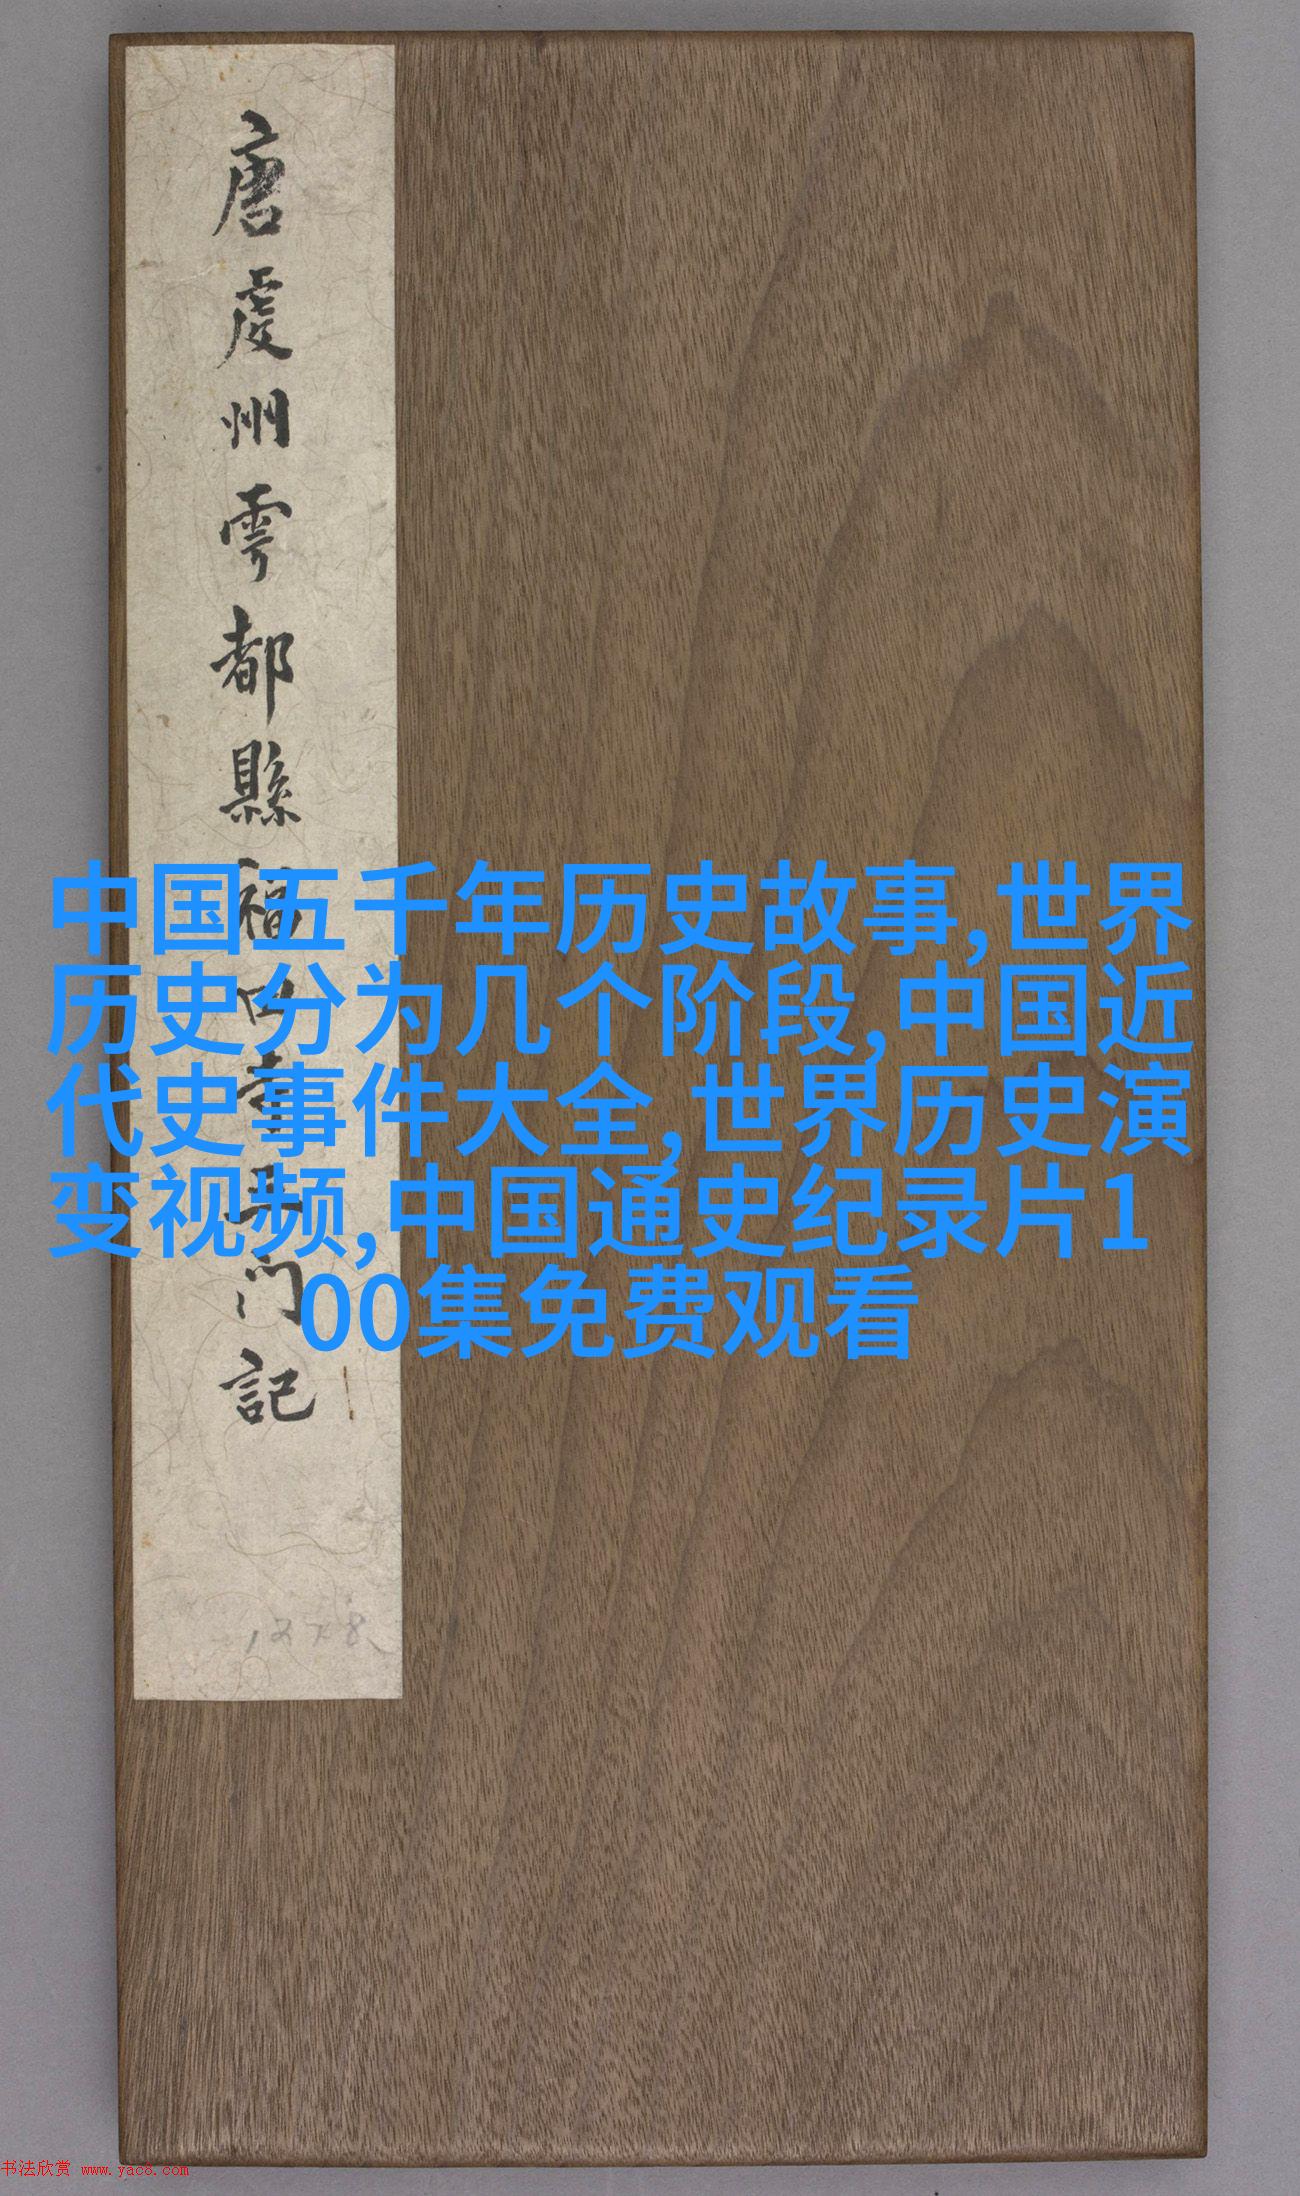 唐虔州雩都縣福田寺三門記
中国五千年历史故事,世界
历史分为几个阶段,中国近
代史事件大全,世界历史演
变视频,中国通史纪录片1
00集免费观看
书法欣赏 www.yac8.com